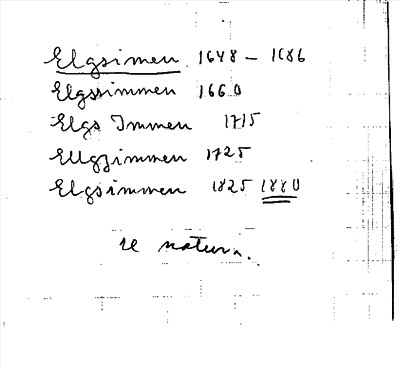 Elgsimen 1648 - 1686
Elgssimmen 1660
Elgs Immen 1715
Ellgzimmen 1725
Elgsimmen 1825 1880
se natur.